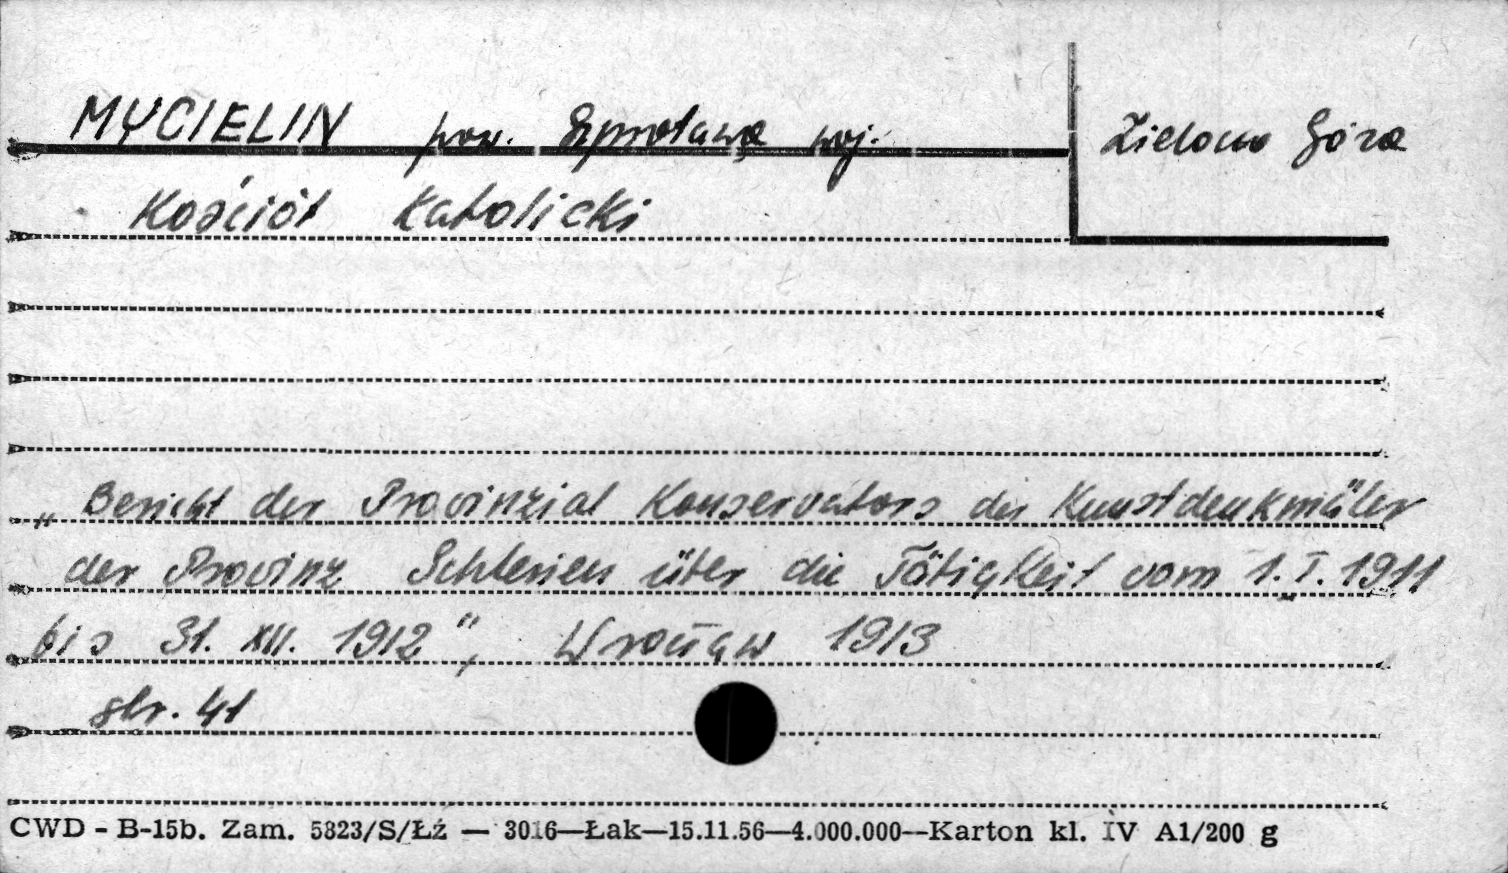 MYCIELIN pow. Szprotawa woj. Zielona Góra
Kościół Katolicki
„Bericht der Provinzial Konservators der Kunstdenkmäler
der Provinz Schlesien über die Tätigkeit vom 1.I.1911
bis 31. XII. 1912", Wrocław 1913
str. 41
CWD - B-15b. Zam. 5823/S/Łź — 3016—Łak—15.11.56—4.000.000—Karton kl. IV A1/200 g